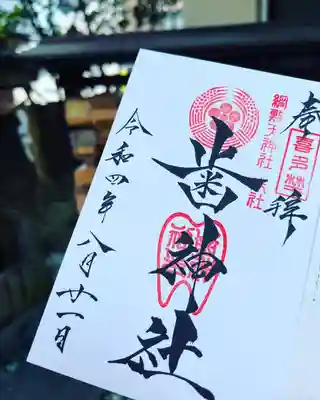 奉拝
喜多埜
綱敷天神社末社
歯神社
令和四年八月廿一日